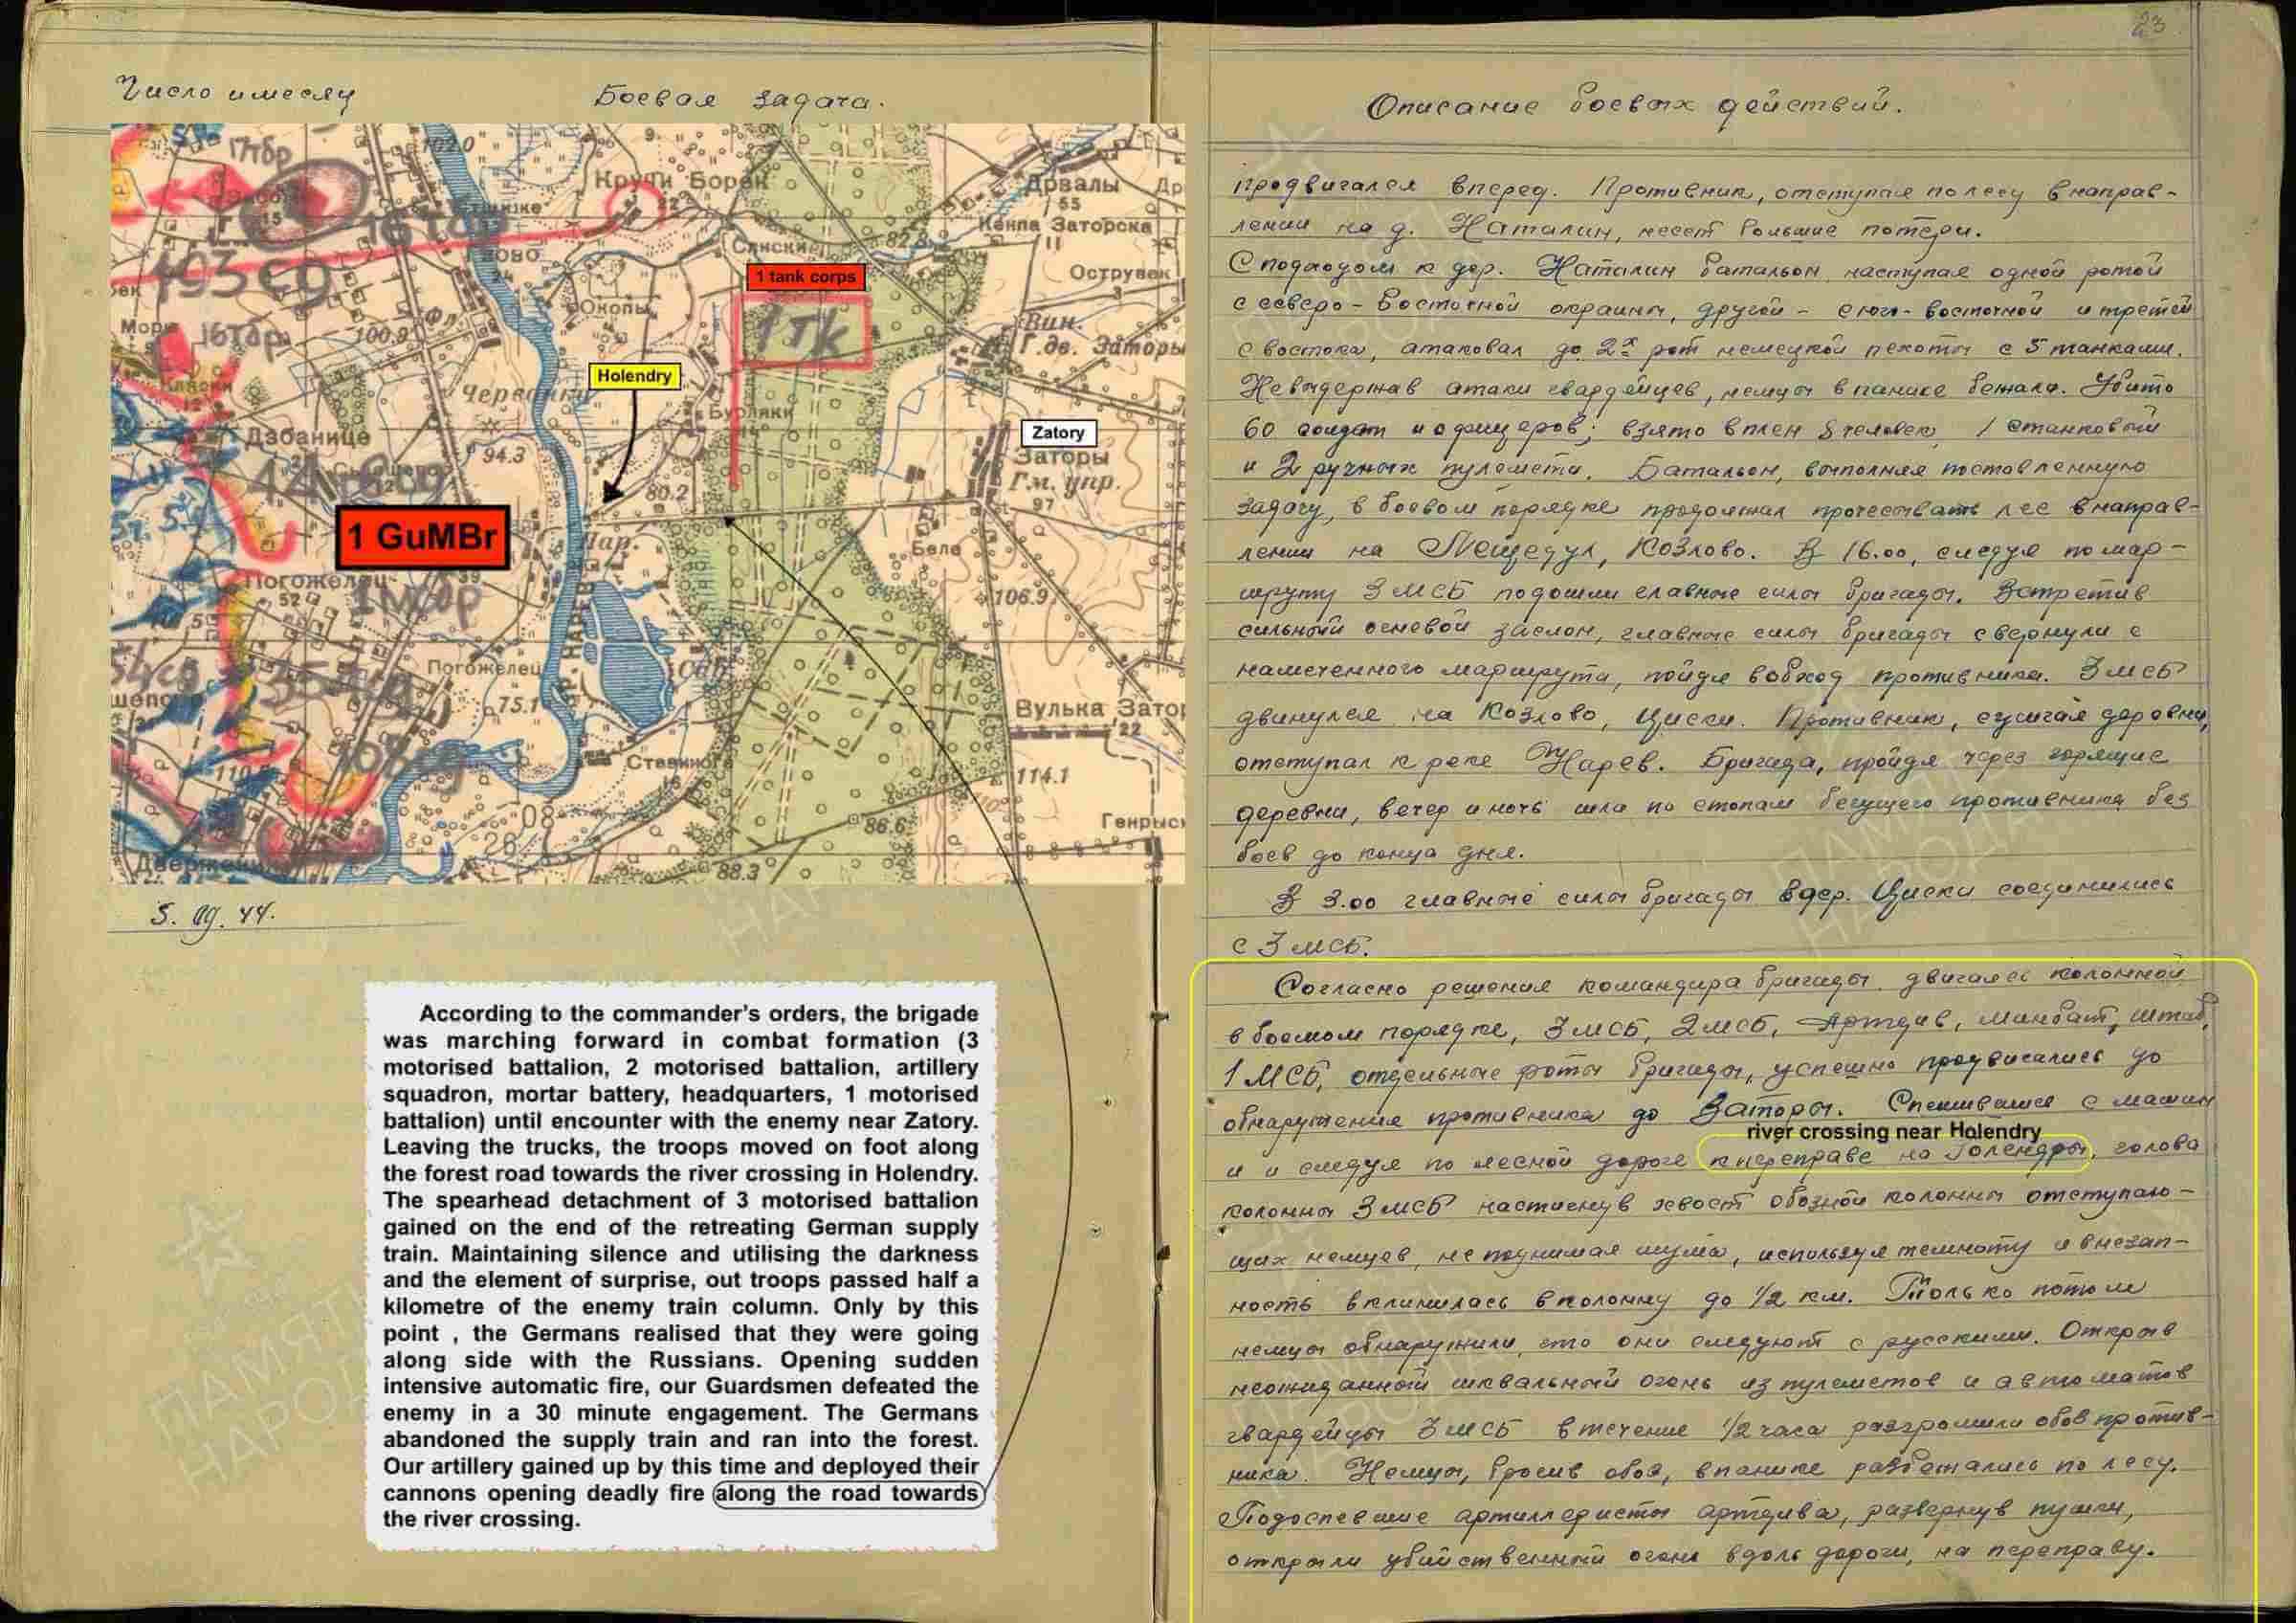 23
Число и месяц
Боевая задача.
Описание боевых действий.
17тбр
102.0
Крути Борек
22
Дрвалы
55
Кемпа Заторска
11
16тбр
193 сд
82.8
1 tank corps
1 тк
Острувек
3
Окопы
Фл.
100.9
16тбр
Вин.
Г. дв. Заторы
Holendry
Бурлаки
Дзбанице
94.3
80.2
Zatory
Заторы
Гм. упр.
97
1 GuMBr
Пар.
Беле
Погожелец
52
1мсбр
106.9
р. НАРЕВ
Погожелец
75.1
Вулька Затор
22
Ставинога
16
114.1
108сд
08
26
86.6
Генрыс
88.3
5. 09. 44.
According to the commander's orders, the brigade
was marching forward in combat formation (3
motorised battalion, 2 motorised battalion, artillery
squadron, mortar battery, headquarters, 1 motorised
battalion) until encounter with the enemy near Zatory.
Leaving the trucks, the troops moved on foot along
the forest road towards the river crossing in Holendry.
The spearhead detachment of 3 motorised battalion
gained on the end of the retreating German supply
train. Maintaining silence and utilising the darkness
and the element of surprise, out troops passed half a
kilometre of the enemy train column. Only by this
point , the Germans realised that they were going
along side with the Russians. Opening sudden
intensive automatic fire, our Guardsmen defeated the
enemy in a 30 minute engagement. The Germans
abandoned the supply train and ran into the forest.
Our artillery gained up by this time and deployed their
cannons opening deadly fire along the road towards
the river crossing.
продвигался вперед. Противник, отступая по лесу в направ-
лении на д. Наталин, несет большие потери.
С подходом к дер. Наталин батальон, наступая одной ротой
с северо-восточной окраины, другой - с юго-восточной и третей
с востока, атаковал до 2х рот немецкой пехоты с 5 танками.
Невыдержав атаки гвардейцев, немцы в панике бежали. Убито
60 солдат и офицеров; взято в плен 8 человек, 1 станковый
и 2 ручных пулемета. Батальон, выполняя поставленную
задачу, в боевом порядке продолжал прочесывать лес в направ-
лении на Лещедул, Козлово. В 16.00, следуя по мар-
шруту 3 МСБ подошли главные силы бригады. Встретив
сильный огневой заслон, главные силы бригады свернули с
намеченного маршрута, пойдя в обход противника. 3 МСБ
двинулся на Козлово, Циски. Противник, сжигая деревни,
отступал к реке Нарев. Бригада, пройдя через горящие
деревни, вечер и ночь шла по стопам бегущего противника без
боев до конца дня.
В 3.00 главные силы бригады в дер. Циски соединились
с 3 МСБ.
Согласно решения командира бригады двигаясь колонной
в боевом порядке, 3 МСБ, 2 МСБ, Артдив, минбат, штаб,
1 МСБ, отдельные роты бригады, успешно продвигались до
обнаружения противника до Заторы. Спешившись с машин
river crossing near Holendry
и и следуя по лесной дороге к переправе на Голендры, голова
колонны 3 МСБ настигнув хвост обозной колонны отступаю-
щих немцев, не поднимая шума, используя темноту и внезап-
ность вклинилась в колонну до 1/2 км. Только потом
немцы обнаружили, что они следуют с русскими. Открыв
неожиданный шквальный огонь из пулеметов и автоматов
гвардейцы 3 МСБ в течение 1/2 часа разгромили обоз против-
ника. Немцы, бросив обоз, в панике разбежались по лесу.
Подоспевшие артиллеристы артдива, развернув пушки,
открыли убийственный огонь вдоль дороги, на переправу.
ПАМЯТЬ
НАРОДА